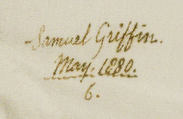 Samuel Griffin.
May. 1880.
6.